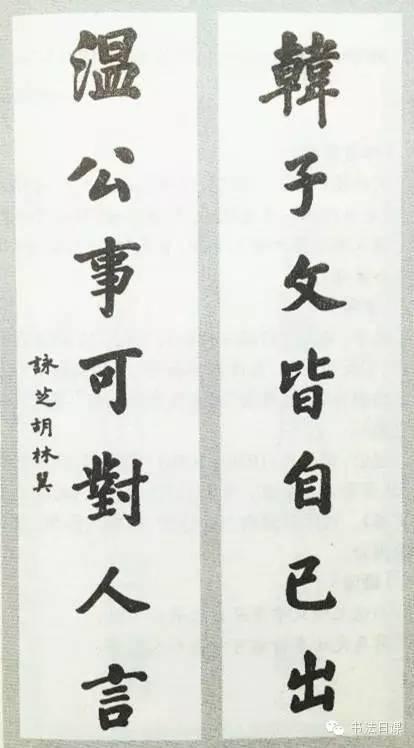 韓子文皆自己出
溫公事可對人言
詠芝胡林翼
书法日课